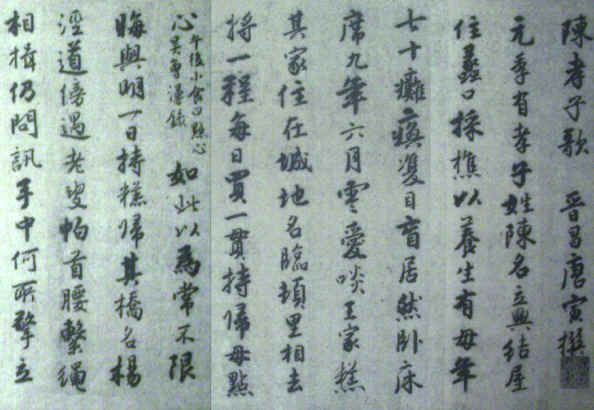 陳孝子歌 晉昌唐寅撰
元季有孝子姓陳名立興結屋
住蠡口採樵以養生有母年
七十癱瘓雙目盲居然卧床
席九年六月零愛啖王家糕
其家住在城地名臨頓里相去
将一程每日買一貫持歸母點
心
午後小食曰點心
吴曾漫錄
如此以為常不限
晦與明一日持糕歸其橋名楊
涇道傍遇老叟帕首腰繫繩
相揖仍問訊手中何所擎立